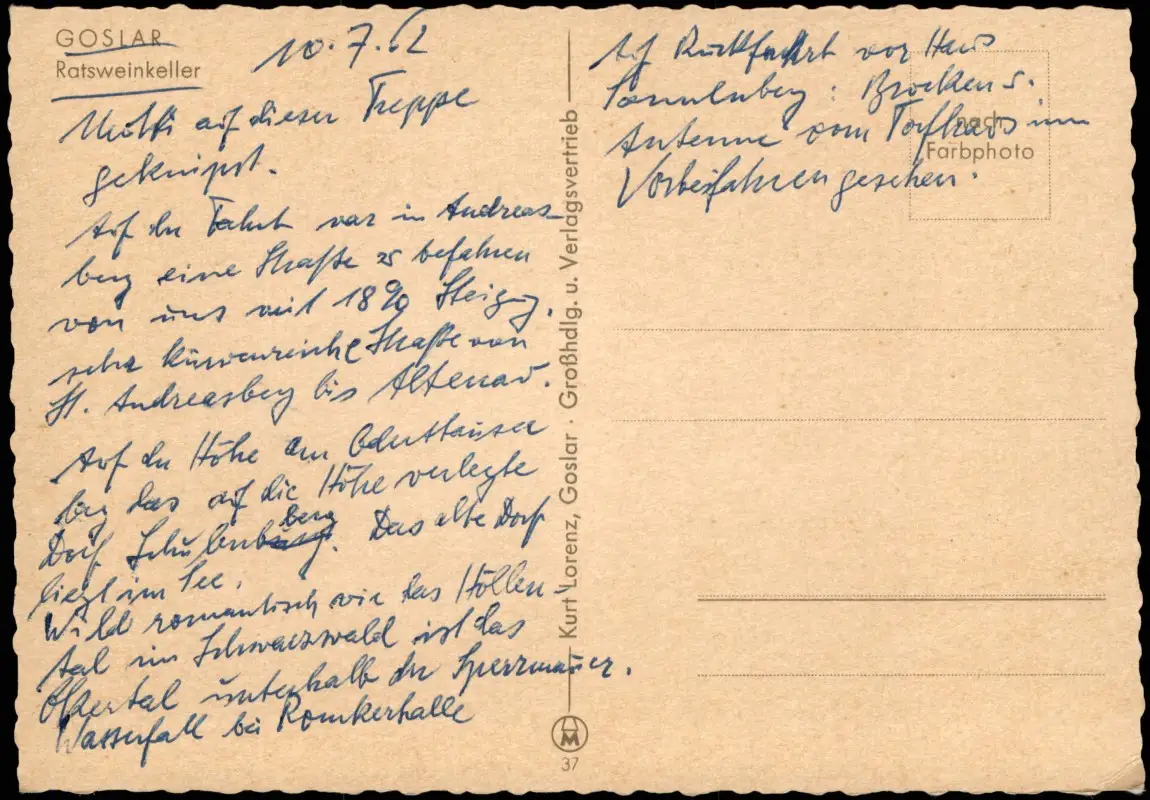 GOSLAR
Ratsweinkeller
10.7.62
Mutti auf dieser Treppe
geknipst.
Auf der Fahrt war in Andreas-
berg eine Straße zu befahren
von uns mit 18% Steigg.
sehr kurvenreiche Straße von
St. Andreasberg bis Altenau.
Auf der Höhe am
lag das auf die Höhe verlegte
Dorf Schulenberg. Das alte Dorf
liegt im See.
Wild romantisch wie das Höllen-
tal im Schwarzwald ist das
Okertal unterhalb der Sperrmauer.
Wasserfall bei Romkerhalle
Kurt Lorenz, Goslar · Großhdlg. u. Verlagsvertrieb
M
37
Auf Rückfahrt vor Haus
Sonnenberg: Brocken u.
Antenne vom Torfhaus im
Vorbeifahren gesehen.
nach
Farbphoto